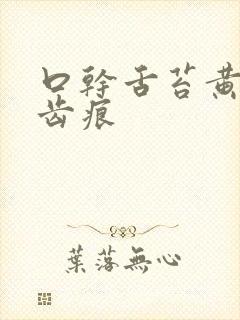 口幹舌苔黃
齿痕
葉落無心